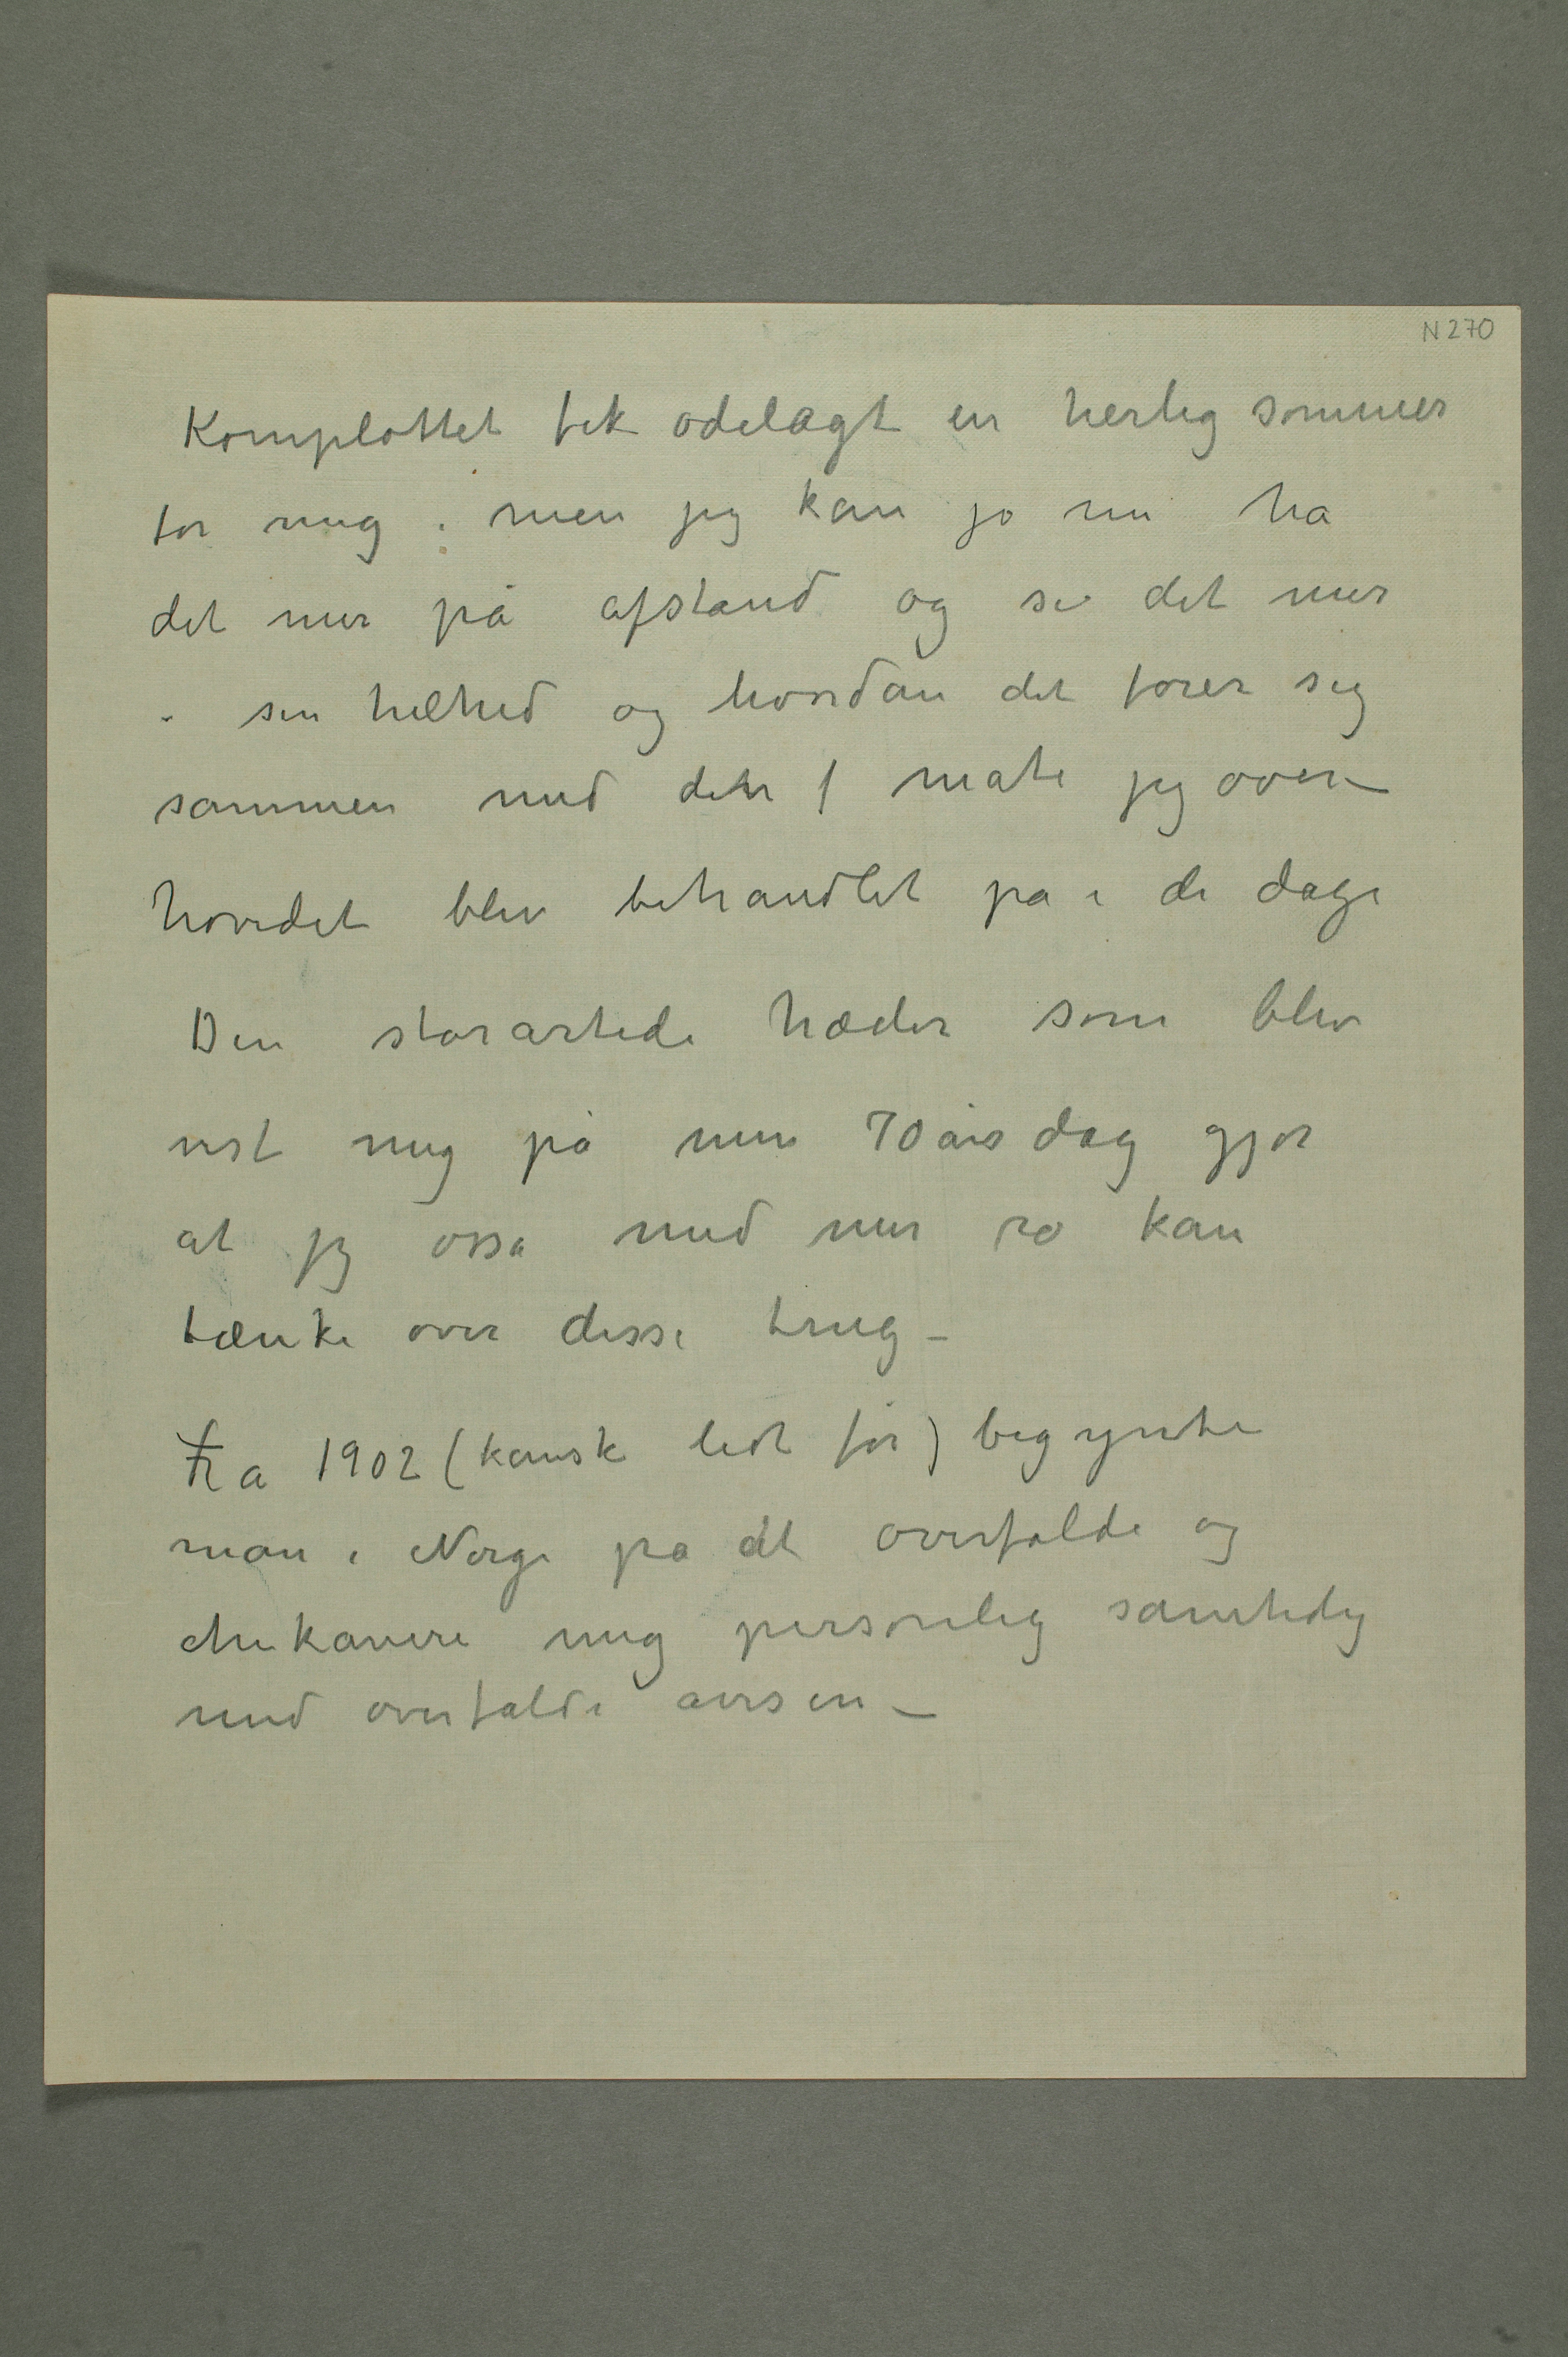 N 270
Komplottet fik ødelagt en herlig sommer
for mig. men jeg kan jo nu ha
det mer på afstand og se det mer
i sin helhed og hvordan det fører seg
sammen med den måte jeg over-
hovedet blev behandlet på i de dage
Den storartede hæder som blev
vist mig på min 70 års dag gjør
at jeg osså med mer ro kan
tænke over disse ting –
Fra 1902 (kanske lidt før) begynte
man i Norge på at overfalde og
chikanere mig personlig samtidig
med overfalde avisen –